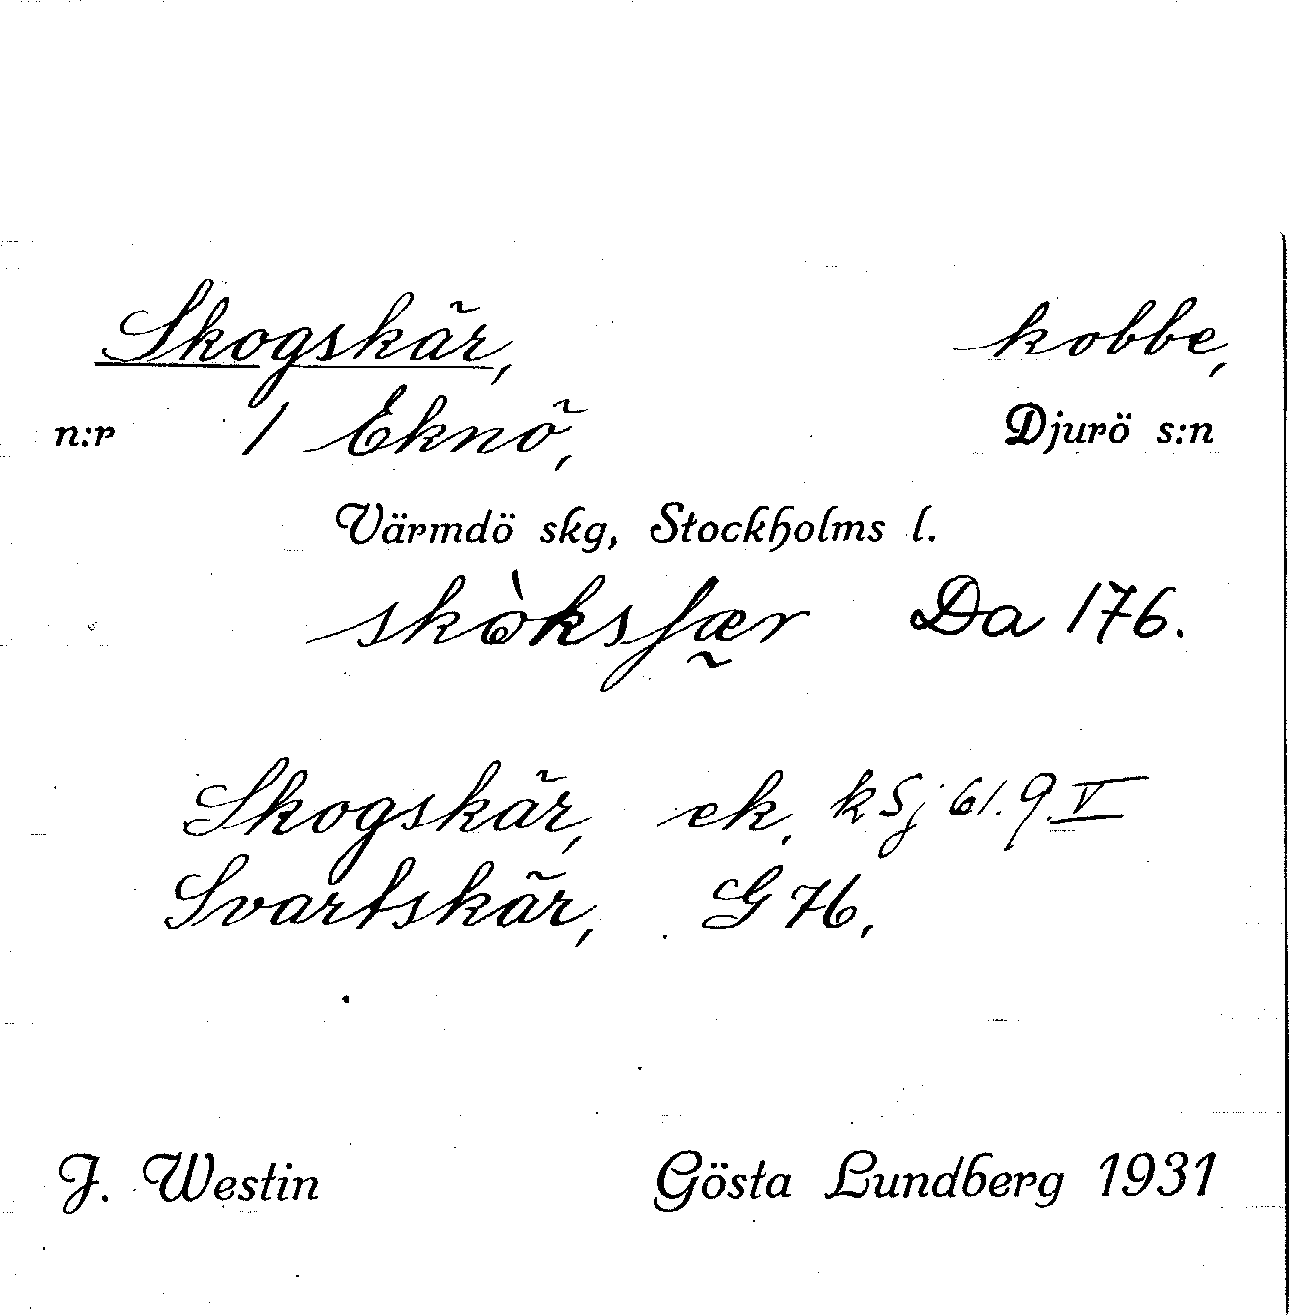 Skogskär, kobbe,
n:r 1 Eknö, Djurö s:n
Värmdö skg, Stockholms l.
skò̀ksʃær Da 176.
Skogskär, ek. k Sj 61.9.V
Svartskär, G 76,
J. Westin Gösta Lundberg 1931